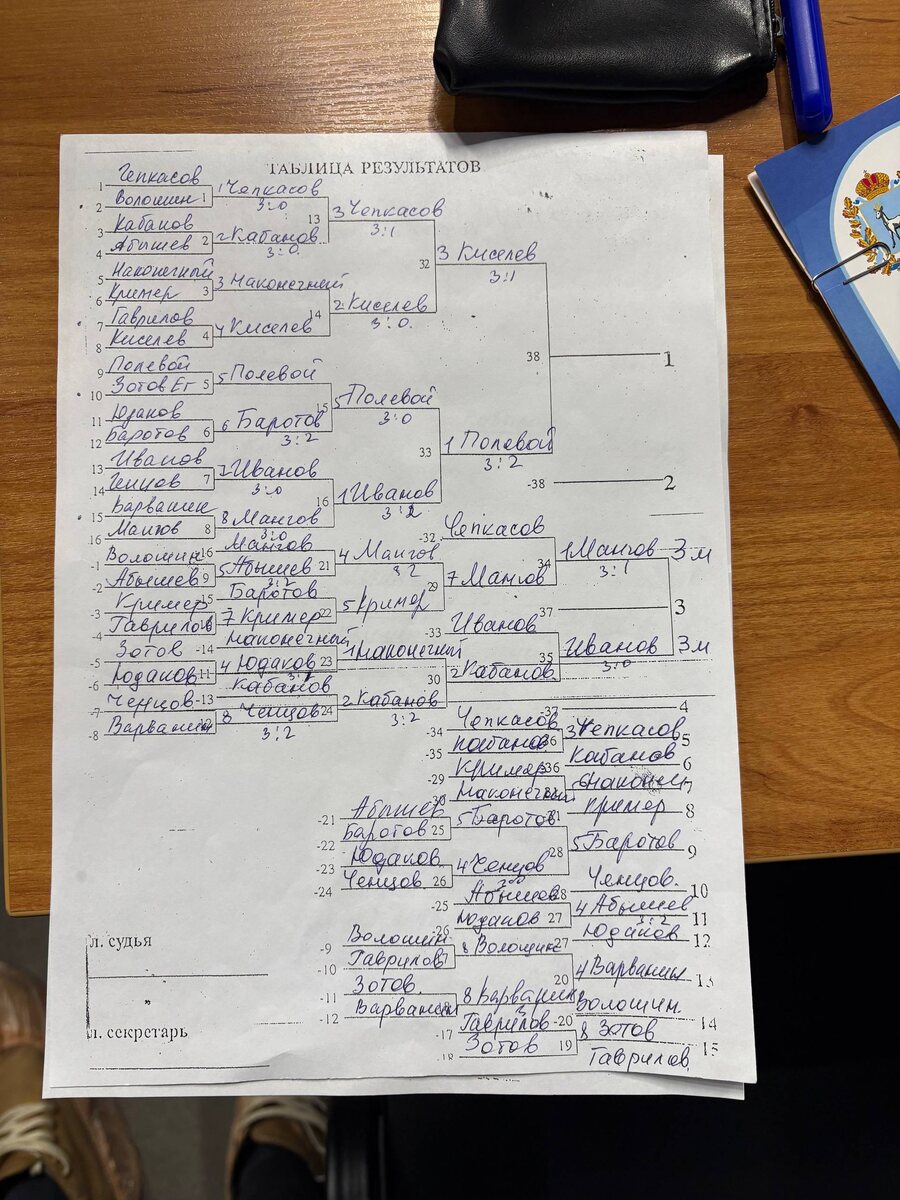 ТАБЛИЦА РЕЗУЛЬТАТОВ
1 Чепкасов
2 Волошин 1
1 Чепкасов
3:0
3 Кабанов
4 Абышев 2
2 Кабанов
3:0
13
3 Чепкасов
3:1
5 Наконечный
6 Кример 3
3 Наконечный
7 Гаврилов
8 Киселев 4
4 Киселев
14
2 Киселев
3:0
32
3 Киселев
3:1
9 Полевой
10 Зотов Ег 5
5 Полевой
11 Юдаков
12 Баротов 6
6 Баротов
3:2
15
5 Полевой
3:0
13 Иванов
14 Ченцов 7
7 Иванов
3:0
15 Варвашин
16 Мангов 8
8 Мангов
3:0
16
1 Иванов
3:2
33
1 Полевой
3:2
38
1
-38
2
-1 Волошин
-2 Абышев 9
-16 Мангов
5 Абышев 21
3:2
4 Мангов
3:2
-3 Кример
-4 Гаврилов
-15 Баротов
7 Кример 22
5 Кример
29
-32 Чепкасов
7 Мангов
34
1 Мангов 3 м
3:1
-5 Зотов
-6 Юдаков 11
-14 Наконечный
4 Юдаков 23
3:1
1 Наконечный
-7 Ченцов
-8 Варвашин
-13 Кабанов
8 Ченцов 24
3:2
2 Кабанов
3:2
30
-33 Иванов
2 Кабанов
35
Иванов 3 м
3:0
37
3
-37
4
-34 Чепкасов
-35 Кабанов 36
3 Чепкасов 5
-36 Кабанов 6
-29 Кример
-30 Наконечный
6 Наконеч 7
Кример 8
-21 Абышев
-22 Баротов 25
5 Баротов
-23 Юдаков
-24 Ченцов 26
4 Ченцов
28
5 Баротов 9
-28 Ченцов 10
-25 Абышев
-26 Юдаков 27
4 Абышев 11
3:2
-27 Юдаков 12
-9 Волошин
-10 Гаврилов
8 Волошин
-11 Зотов
-12 Варвашин
8 Варвашин
20
4 Варвашин 13
-20 Волошин 14
-17 Гаврилов
-18 Зотов 19
8 Зотов 15
Гаврилов
л. судья
л. секретарь